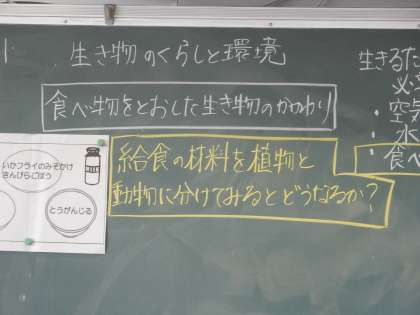 生き物のくらしと環境
食べ物をとおした生き物のかかわり
給食の材料を植物と
動物に分けてみるとどうなるか?
いかフライのみぞかけ
きんぴらごぼう
とうがんじる
生きるた
必
・空気
・水
・食べ